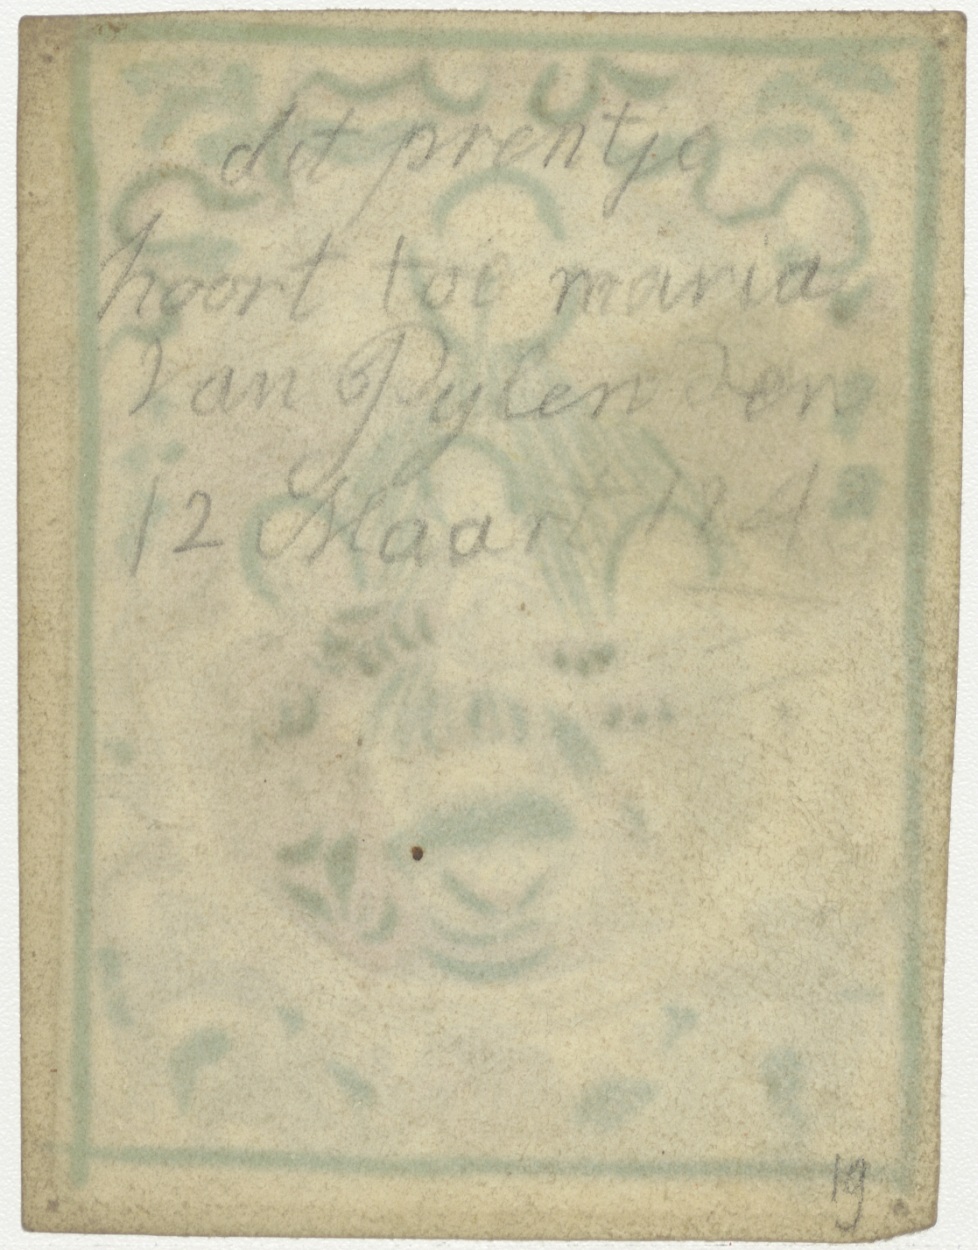 dit prentje
hoort toe maria
van Pylen den
12 Maart
19